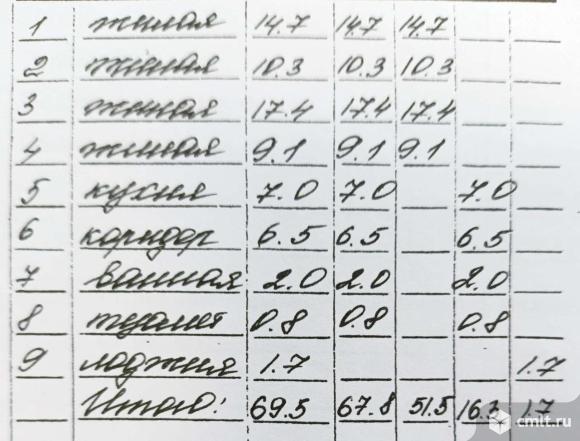 1 жилая 14.7 14.7 14.7
2 жилая 10.3 10.3 10.3
3 жилая 17.4 17.4 17.4
4 жилая 9.1 9.1 9.1
5 кухня 7.0 7.0 7.0
6 коридор 6.5 6.5 6.5
7 ванная 2.0 2.0 2.0
8 туалет 0.8 0.8 0.8
9 лоджия 1.7 1.7
Итого: 69.5 67.8 51.5 16.3 1.7
cmlt.ru